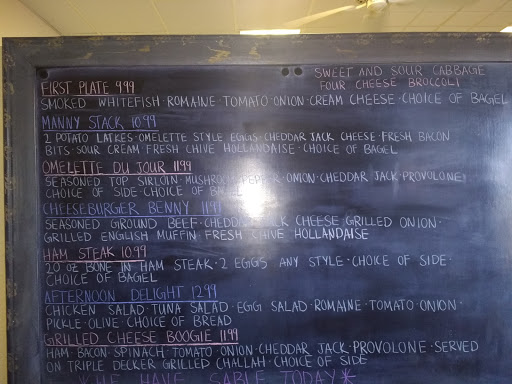 SWEET AND SOUR CABBAGE
FOUR CHEESE BROCCOLI
FIRST PLATE 9.99
SMOKED WHITEFISH · ROMAINE · TOMATO ONION · CREAM CHEESE · CHOICE OF BAGEL
MANNY STACK 10.99
2 POTATO LATKES · OMELETTE STYLE EGGS · CHEDDAR JACK CHEESE · FRESH BACON
BITS · SOUR CREAM · FRESH CHIVE HOLLANDAISE · CHOICE OF BAGEL
OMELETTE DU JOUR 11.99
SEASONED TOP SIRLOIN · MUSHROOM · ONION · CHEDDAR JACK · PROVOLONE
CHOICE OF SIDE · CHOICE OF
CHEESEBURGER BENNY 11.99
SEASONED GROUND BEEF · CHEDDAR JACK CHEESE · GRILLED ONION ·
GRILLED ENGLISH MUFFIN · FRESH CHIVE HOLLANDAISE
HAM STEAK 10.99
20 OZ BONE IN HAM STEAK · 2 EGGS ANY STYLE · CHOICE OF SIDE ·
CHOICE OF BAGEL
AFTERNOON DELIGHT 12.99
CHICKEN SALAD · TUNA SALAD · EGG SALAD · ROMAINE · TOMATO ONION ·
PICKLE · OLIVE CHOICE OF BREAD
GRILLED CHEESE BOOGIE 11.99
HAM · BACON · SPINACH · TOMATO · ONION · CHEDDAR JACK · PROVOLONE · SERVED
ON TRIPLE DECKER GRILLED CHALLAH · CHOICE OF SIDE
WE HAVE SABLE TODAY*